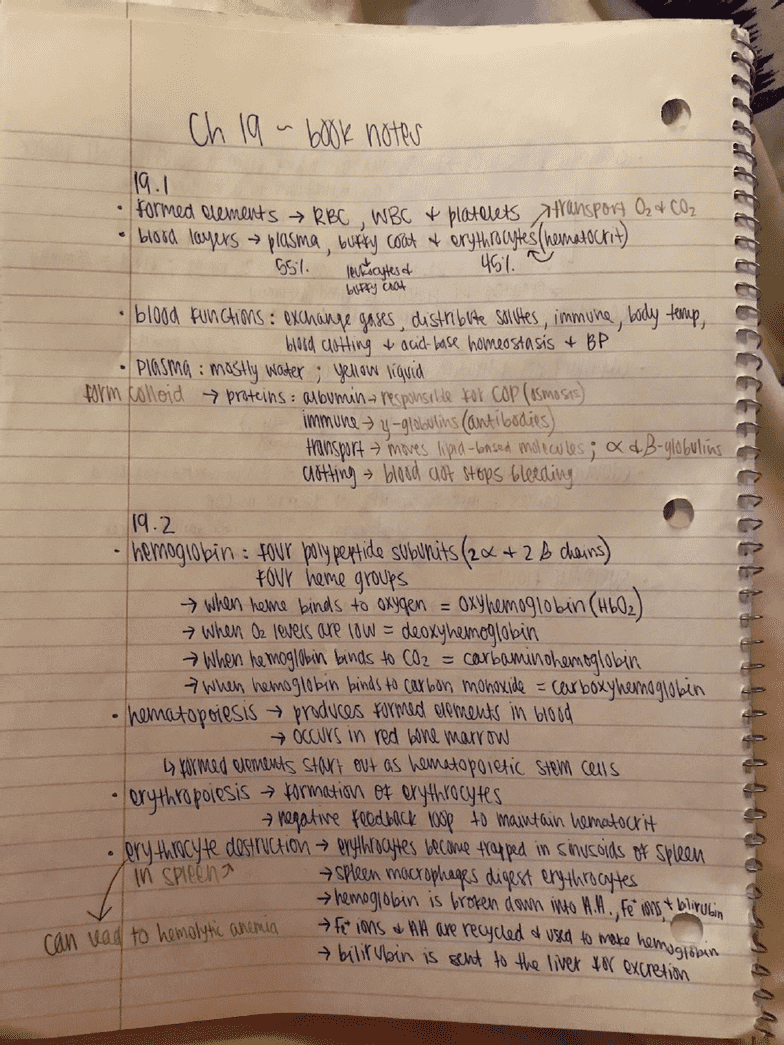 Ch 19 ~ book notes
19.1
• formed elements → RBC, WBC + platelets ↗transport O₂ + CO₂
• blood layers → plasma, buffy coat + erythrocytes (hematocrit)
55% leukocytes + 45%
buffy coat
• blood functions : exchange gases, distribute solutes, immune, body temp,
blood clotting + acid-base homeostasis + BP
• Plasma : mostly water ; yellow liquid
form colloid → proteins : albumin → responsible for COP (osmosis)
immune → γ-globulins (antibodies)
transport → moves lipid-based molecules ; α + β-globulins
clotting → blood clot stops bleeding
19.2
• hemoglobin : four polypeptide subunits (2α + 2 β chains)
four heme groups
→ when heme binds to oxygen = oxyhemoglobin (HbO₂)
→ when O₂ levels are low = deoxyhemoglobin
→ when hemoglobin binds to CO₂ = carbaminohemoglobin
→ when hemoglobin binds to carbon monoxide = carboxyhemoglobin
• hematopoiesis → produces formed elements in blood
→ occurs in red bone marrow
↳ formed elements start out as hematopoietic stem cells
• erythropoiesis → formation of erythrocytes
→ negative feedback loop to maintain hematocrit
• erythrocyte destruction → erythrocytes become trapped in sinusoids of spleen
in spleen↗ → spleen macrophages digest erythrocytes
→ hemoglobin is broken down into A.A., Fe⁺ ions, + bilirubin
can lead to hemolytic anemia → Fe⁺ ions + AA are recycled + used to make hemoglobin
→ bilirubin is sent to the liver for excretion